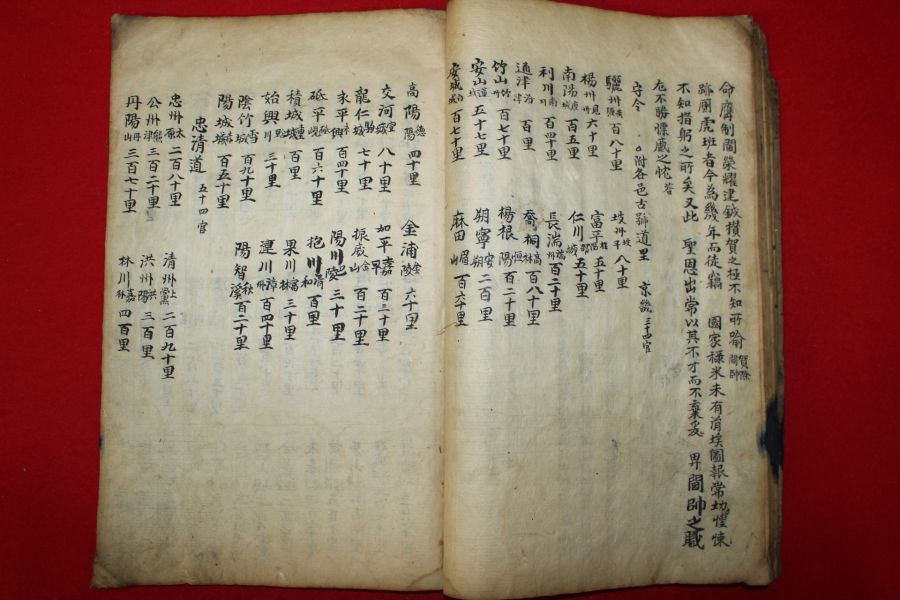 命膺制閫榮耀建鉞攢賀之極不知所喩 賀除閫帥
跡厠虎班者今為幾年而徒竊 國家祿米未有涓埃圖報常切惶悚
不知措躬之所矣又此 聖恩出常以其不才而不棄爰 畀閫帥之職
尤不勝懍蹙之忱
守令 附各邑古號道里 京畿三十四官
驪州 百八十里 坡州 坡平 八十里
楊州 見州 六十里 富平 五十里
南陽 百五里 仁川 五十里
利川 南川 百四十里 長湍 百二十里
通津 百里 喬桐 百八十里
竹山 竹州 百七十里 楊根 百二十里
安山 五十七里 朔寧 二百里
安城 白城 百七十里 麻田 百六十里
高陽 德陽 四十里 金浦 金陵 六十里
交河 宣城 八十里 加平 嘉平 百三十里
龍仁 駒城 七十里 振威 百二十里
永平 永興 百四十里 陽川 巴陵 三十里
砥平 百六十里 抱川 清和 百里
積城 百里 果川 富林 三十里
始興 三十里 漣川 漳州 百四十里
陰竹 雪城 百九十里 陽智 秋溪 百二十里
陽城 百五十里
忠清道 五十四官
忠州 太原 二百八十里 清州 上黨 二百九十里
公州 熊津 三百二十里 洪州 洪陽 三百里
丹陽 丹山 三百七十里 林川 嘉林 四百里